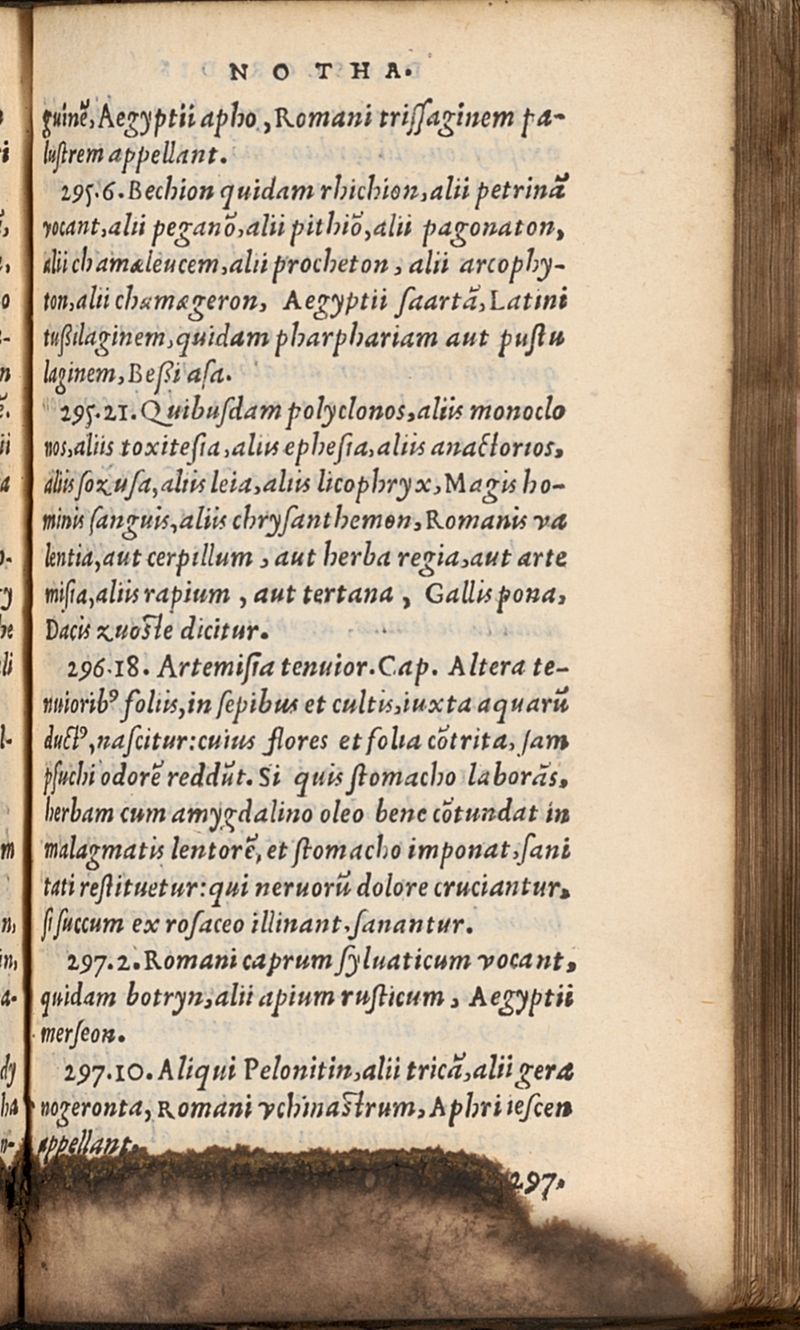 NOTHA.
guinē, Aegyptii apho, Romani trissaginem pa-
lustrem appellant.
295.6. Bechion quidam rhichion, alii petrinā
vocant, alii peganō, alii pithiō, alii pagonaton,
alii chamæleucem, alii procheton, alii arcophy-
ton, alii chamægeron, Aegyptii saartā, Latini
tußilaginem, quidam pharphariam aut pustu
laginem, Beßi asa.
295.21. Quibusdam polyclonos, aliis monoclo
nos, aliis toxitesia, aliis ephesia, aliis anactorios,
aliis sozusa, aliis leia, aliis licophryx, Magis ho-
minis sanguis, aliis chrysanthemon, Romanis va
lentia, aut cerpillum, aut herba regia, aut arte
misia, aliis rapium, aut tertana, Gallis pona,
Dacis zuoste dicitur.
296.18. Artemisia tenuior. Cap. Altera te-
nuiorib⁹ foliis, in sepibus et cultis, iuxta aquarū
duct⁹, nascitur: cuius flores et folia cōtrita, sam
psuchi odorē reddūt. Si quis stomacho laborās,
herbam cum amygdalino oleo bene cōtundat in
malagmatis lentorē, et stomacho imponat, sani
tati restituetur: qui neruorū dolore cruciantur,
si succum ex rosaceo illinant, sanantur.
297.2. Romani caprum syluaticum vocant,
quidam botryn, alii apium rusticum, Aegyptii
merseon.
297.10. Aliqui Pelonitin, alii tricā, alii gera
nogeronta, Romani ychinastrum, Aphri iescen
appellant.
297.